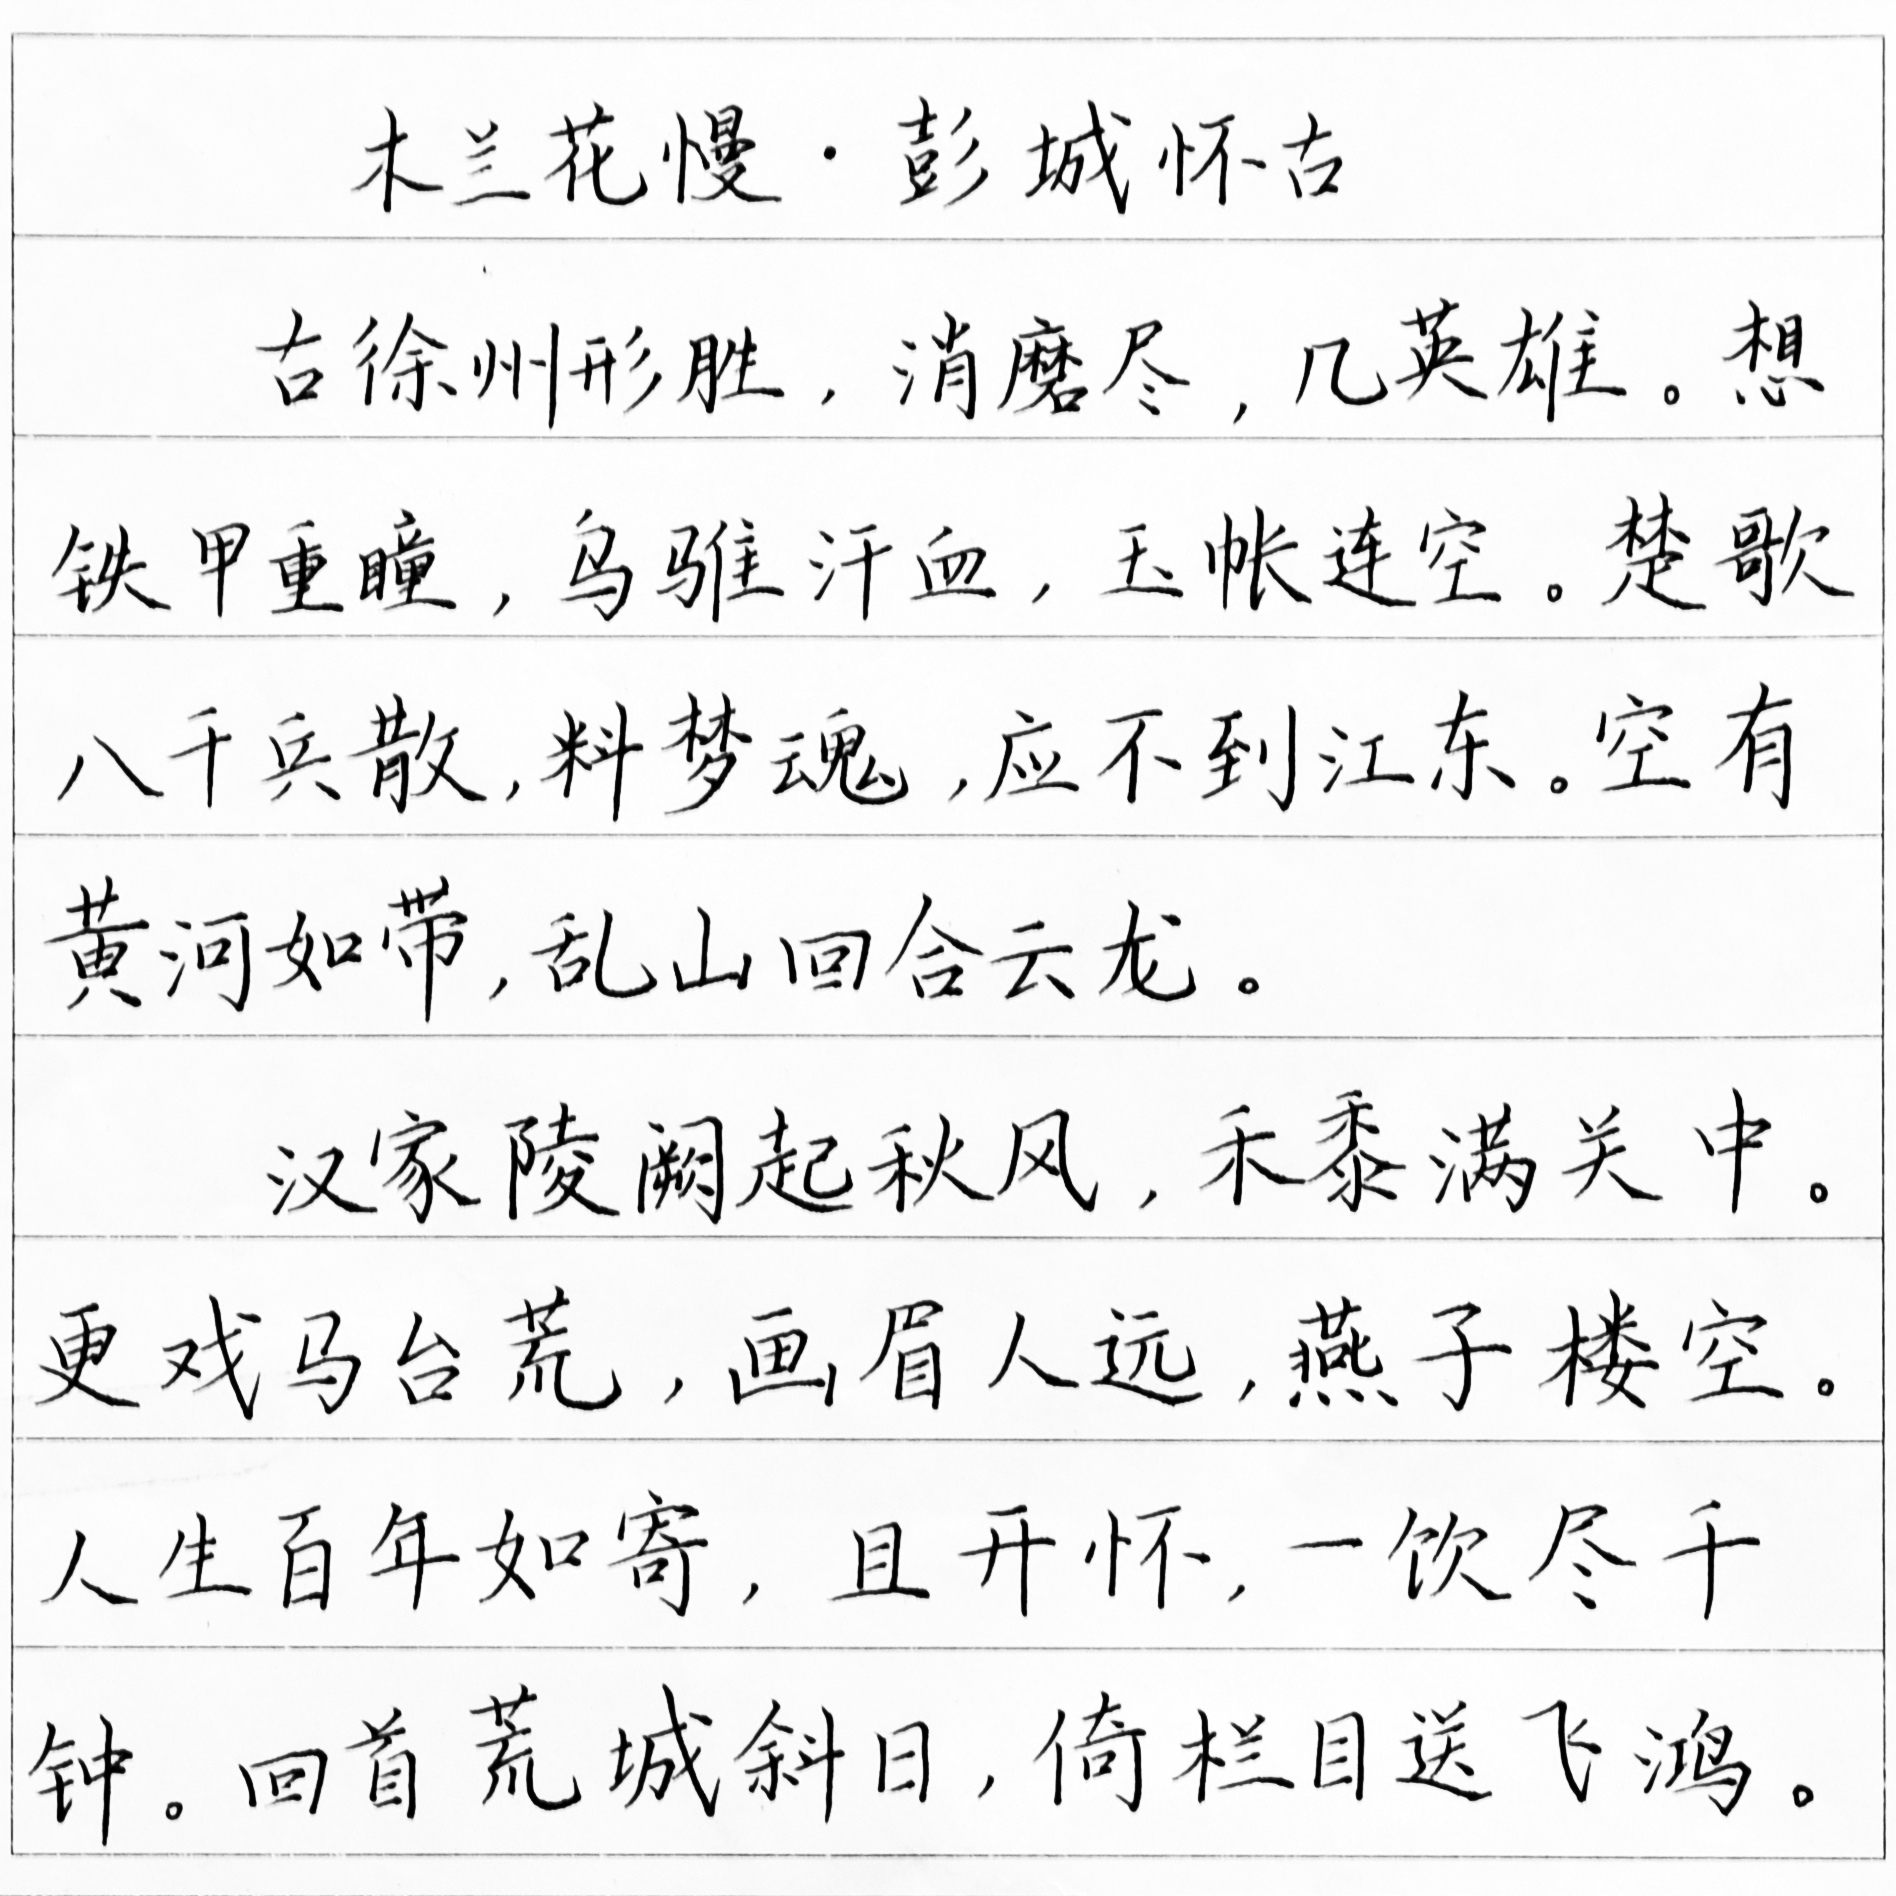 木兰花慢·彭城怀古
古徐州形胜，消磨尽，几英雄。想
铁甲重瞳，乌骓汗血，玉帐连空。楚歌
八千兵散，料梦魂，应不到江东。空有
黄河如带，乱山回合云龙。
汉家陵阙起秋风，禾黍满关中。
更戏马台荒，画眉人远，燕子楼空。
人生百年如寄，且开怀，一饮尽千
钟。回首荒城斜日，倚栏目送飞鸿。